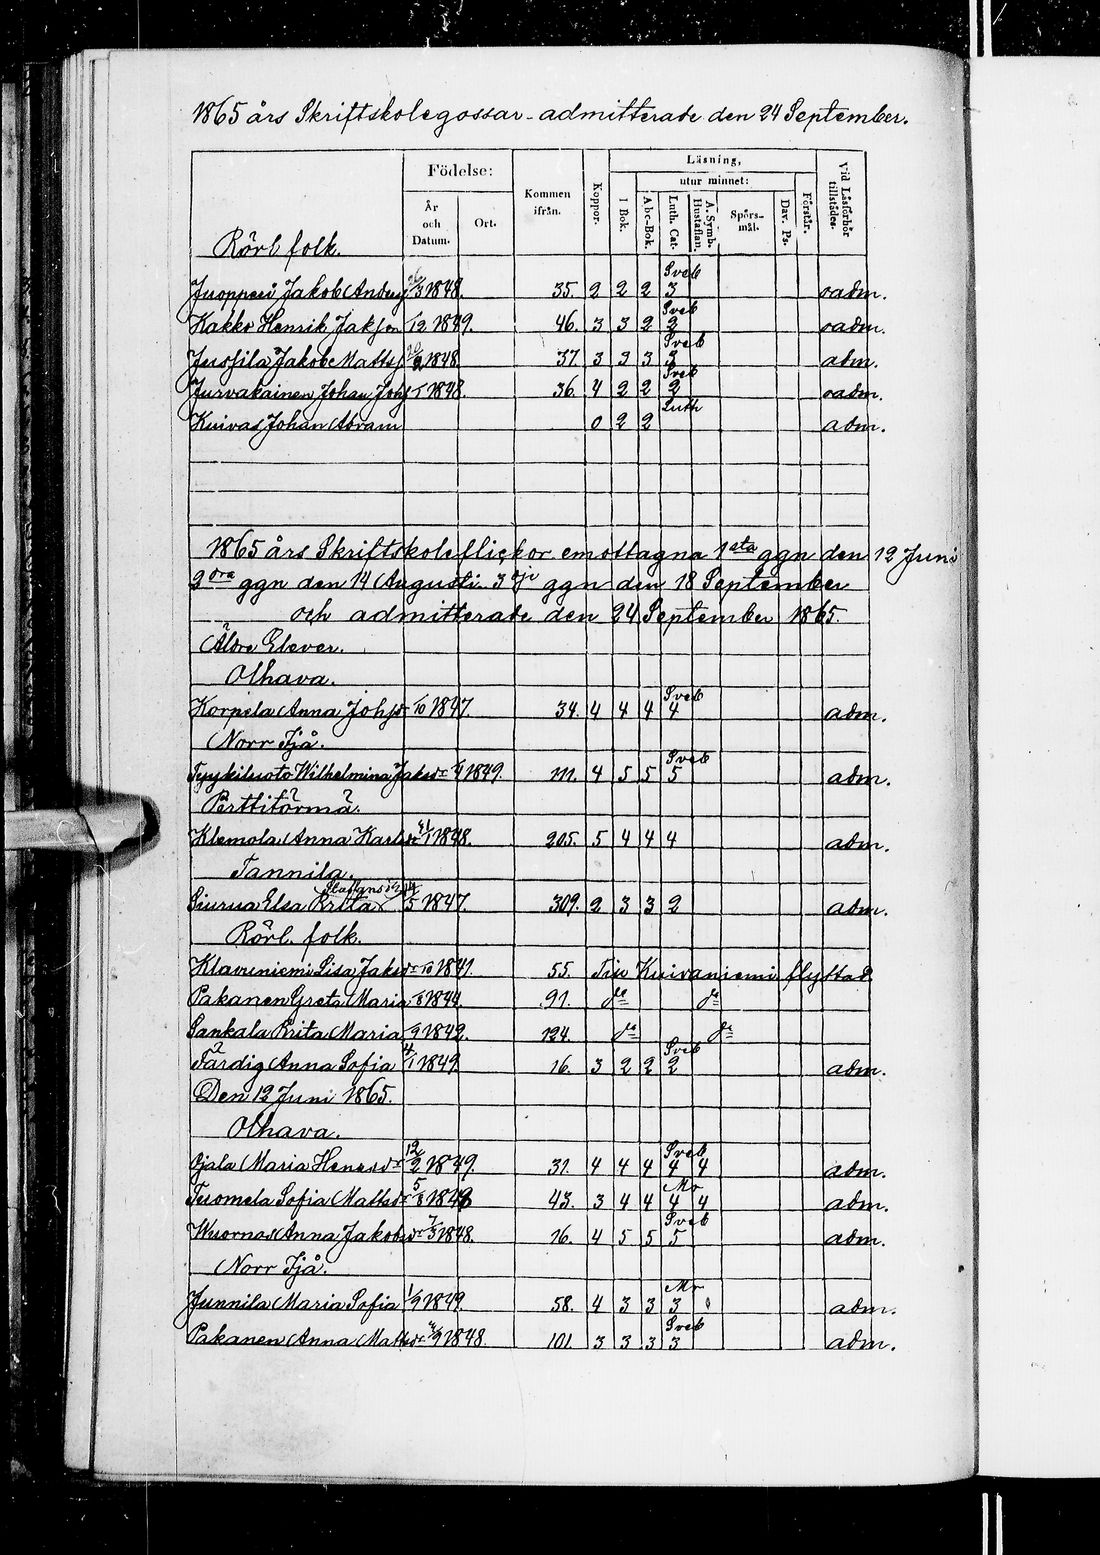 1865 års Skriftskolegossar - admitterade den 24 September.
Födelse: Kommen ifrån. Koppor. Läsning, Vid Läsförhör tillstädes.
År och Datum. Ort. 1 Bok. utur minnet: Förstår.
Abc-Bok. Luth. Cat. A. Symb. Hustaflan. Spörs-mål. Dav. Ps.
Rörl. folk.
Jakob 1848. 35. 2 2 2 Sveb 3 oadm.
Kakko Henrik Jaksson /12 1849. 46. 3 3 2 Sveb 2 oadm.
Jussila Jakob Matts 1848. 37. 3 3 3 Sveb 3 adm.
Jurvakainen Johan Johs 1848. 36. 4 2 2 Sveb 2 oadm.
Kuivas Johan Abram 0 2 2 Luth adm.
1865 års Skriftskoleflickor emottagna 1sta ggn den 12 Juni
2dra ggn den 14 Augusti 3dje ggn den 18 September
och admitterade den 24 September 1865.
Äldre Elever.
Olhava.
Korpela Anna Johsdr /10 1847. 34. 4 4 4 Sveb 4 adm.
Norr Ijå.
Tyykiluoto Wilhelmina Jaksdr 1849. 111. 4 5 5 Sveb 5 adm.
Perttitörmä.
Klemola Anna Karlsdr 1848. 205. 5 4 4 4 adm.
Tannila.
Siurua Elsa Brita Staffansdr /5 1847. 309. 2 3 3 2 adm.
Rörl. folk.
Klaruniemi Lisa Jaksdr /10 1841. 55. Till Kuivaniemi flyttad
Pakanen Greta Maria 1844. 91. do do
Sankala Brita Maria /9 1842. 124. do do
Färdig Anna Sofia 4/1 1849. 16. 3 2 2 Sveb 2 adm.
Den 12 Juni 1865.
Olhava.
Ojala Maria Henrsdr 12/2 1849. 31. 4 4 4 Sveb 4 4 adm.
Tuomela Sofia Mattsdr 43. 3 4 4 Mr 4 4 adm.
Wuornos Anna Jakobsdr 7/3 1848. 16. 4 5 5 Sveb 5 adm.
Norr Ijå.
Junnila Maria Sofia 1/9 1849. 58. 4 3 3 Mr 3 adm.
Pakanen Anna Mattsdr 1848. 101. 3 3 3 Sveb 3 adm.